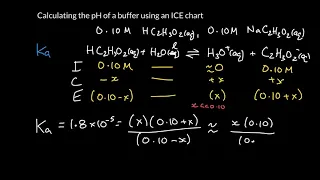 Calculating the pH of a buffer using an ICE chart
0.10M HC₂H₃O₂(aq), 0.10M NaC₂H₃O₂(aq)
Ka HC₂H₃O₂(aq) + H₂O(l) ⇌ H₃O⁺(aq) + C₂H₃O₂⁻(aq)
I 0.10M ≈0 0.10M
C -x +x +x
E (0.10-x) (x) (0.10+x)
x<<0.10
Ka = 1.8×10⁻⁵ = (x)(0.10+x) / (0.10-x) ≈ x(0.10) / (0.